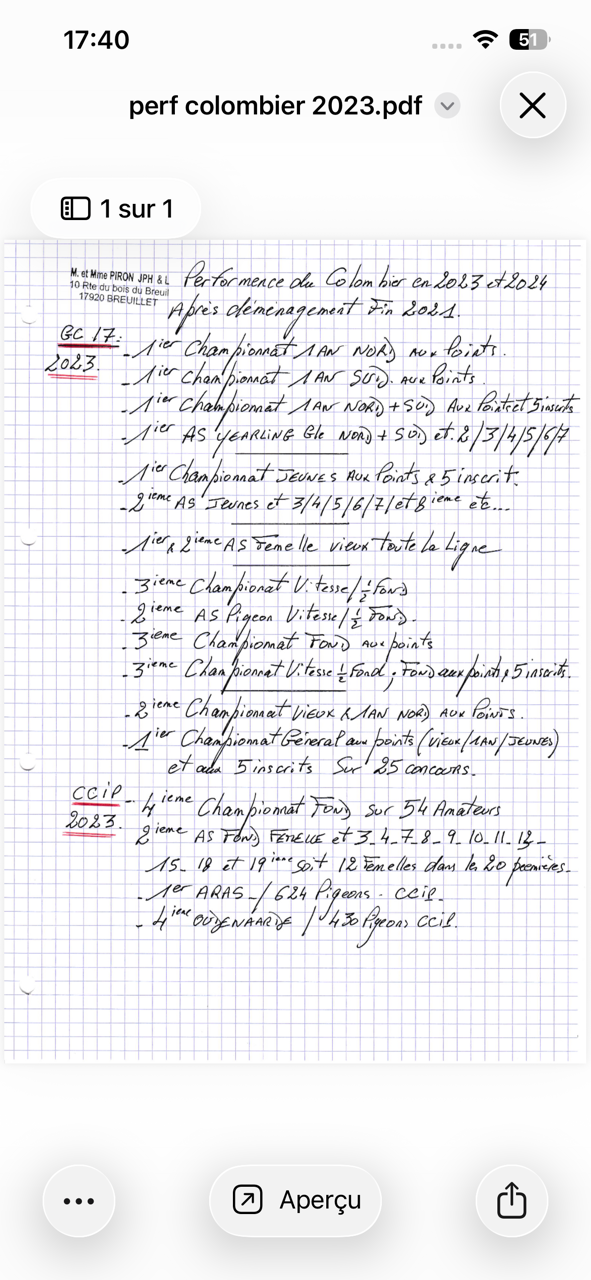 17:40
51
perf colombier 2023.pdf
1 sur 1
M. et Mme PIRON JPH & L
10 Rte du bois du Breuil
17920 BREUILLET
Performence du Colombier en 2023 et 2024
Après déménagement Fin 2021.
GC 17:
2023.
- 1ier Championnat 1AN NORD AUX Points.
- 1ier Championnat 1AN SUD. AUX Points.
- 1ier Championnat 1AN NORD + SUD AUX Points et 5 inscrits
- 1ier AS YEARLING Gle NORD + SUD et. 2/3/4/5/6/7
- 1ier Championnat JEUNES AUX Points & 5 inscrit.
- 2ieme AS Jeunes et 3/4/5/6/7/et 8ieme etc...
- 1ier & 2ieme AS Femelle vieux toute La Ligne
- 3ieme Championat Vitesse/½ Fond
- 2ieme AS Pigeon Vitesse/½ Fond.
- 3ieme Championnat FOND AUX points
- 3ieme Championnat Vitesse ½ Fond ; FOND aux points & 5 inscrits.
- 2ieme Championnat VIEUX & 1AN NORD AUX Points.
- 1ier Championnat Géneral aux points (VIEUX/1AN/JEUNES)
et aux 5 inscrits Sur 25 concours.
CCIP
2023.
- 4ieme Championnat FOND Sur 54 Amateurs
2ieme AS FOND FEMELLE et 3_4_7_8_9_10_11_12_
15_18 et 19ieme soit 12 Femelles dans les 20 premières.
- 1er ARAS / 624 Pigeons. CCIP.
- 4ieme OUDENAARDE / 430 Pigeons CCIP.
Aperçu